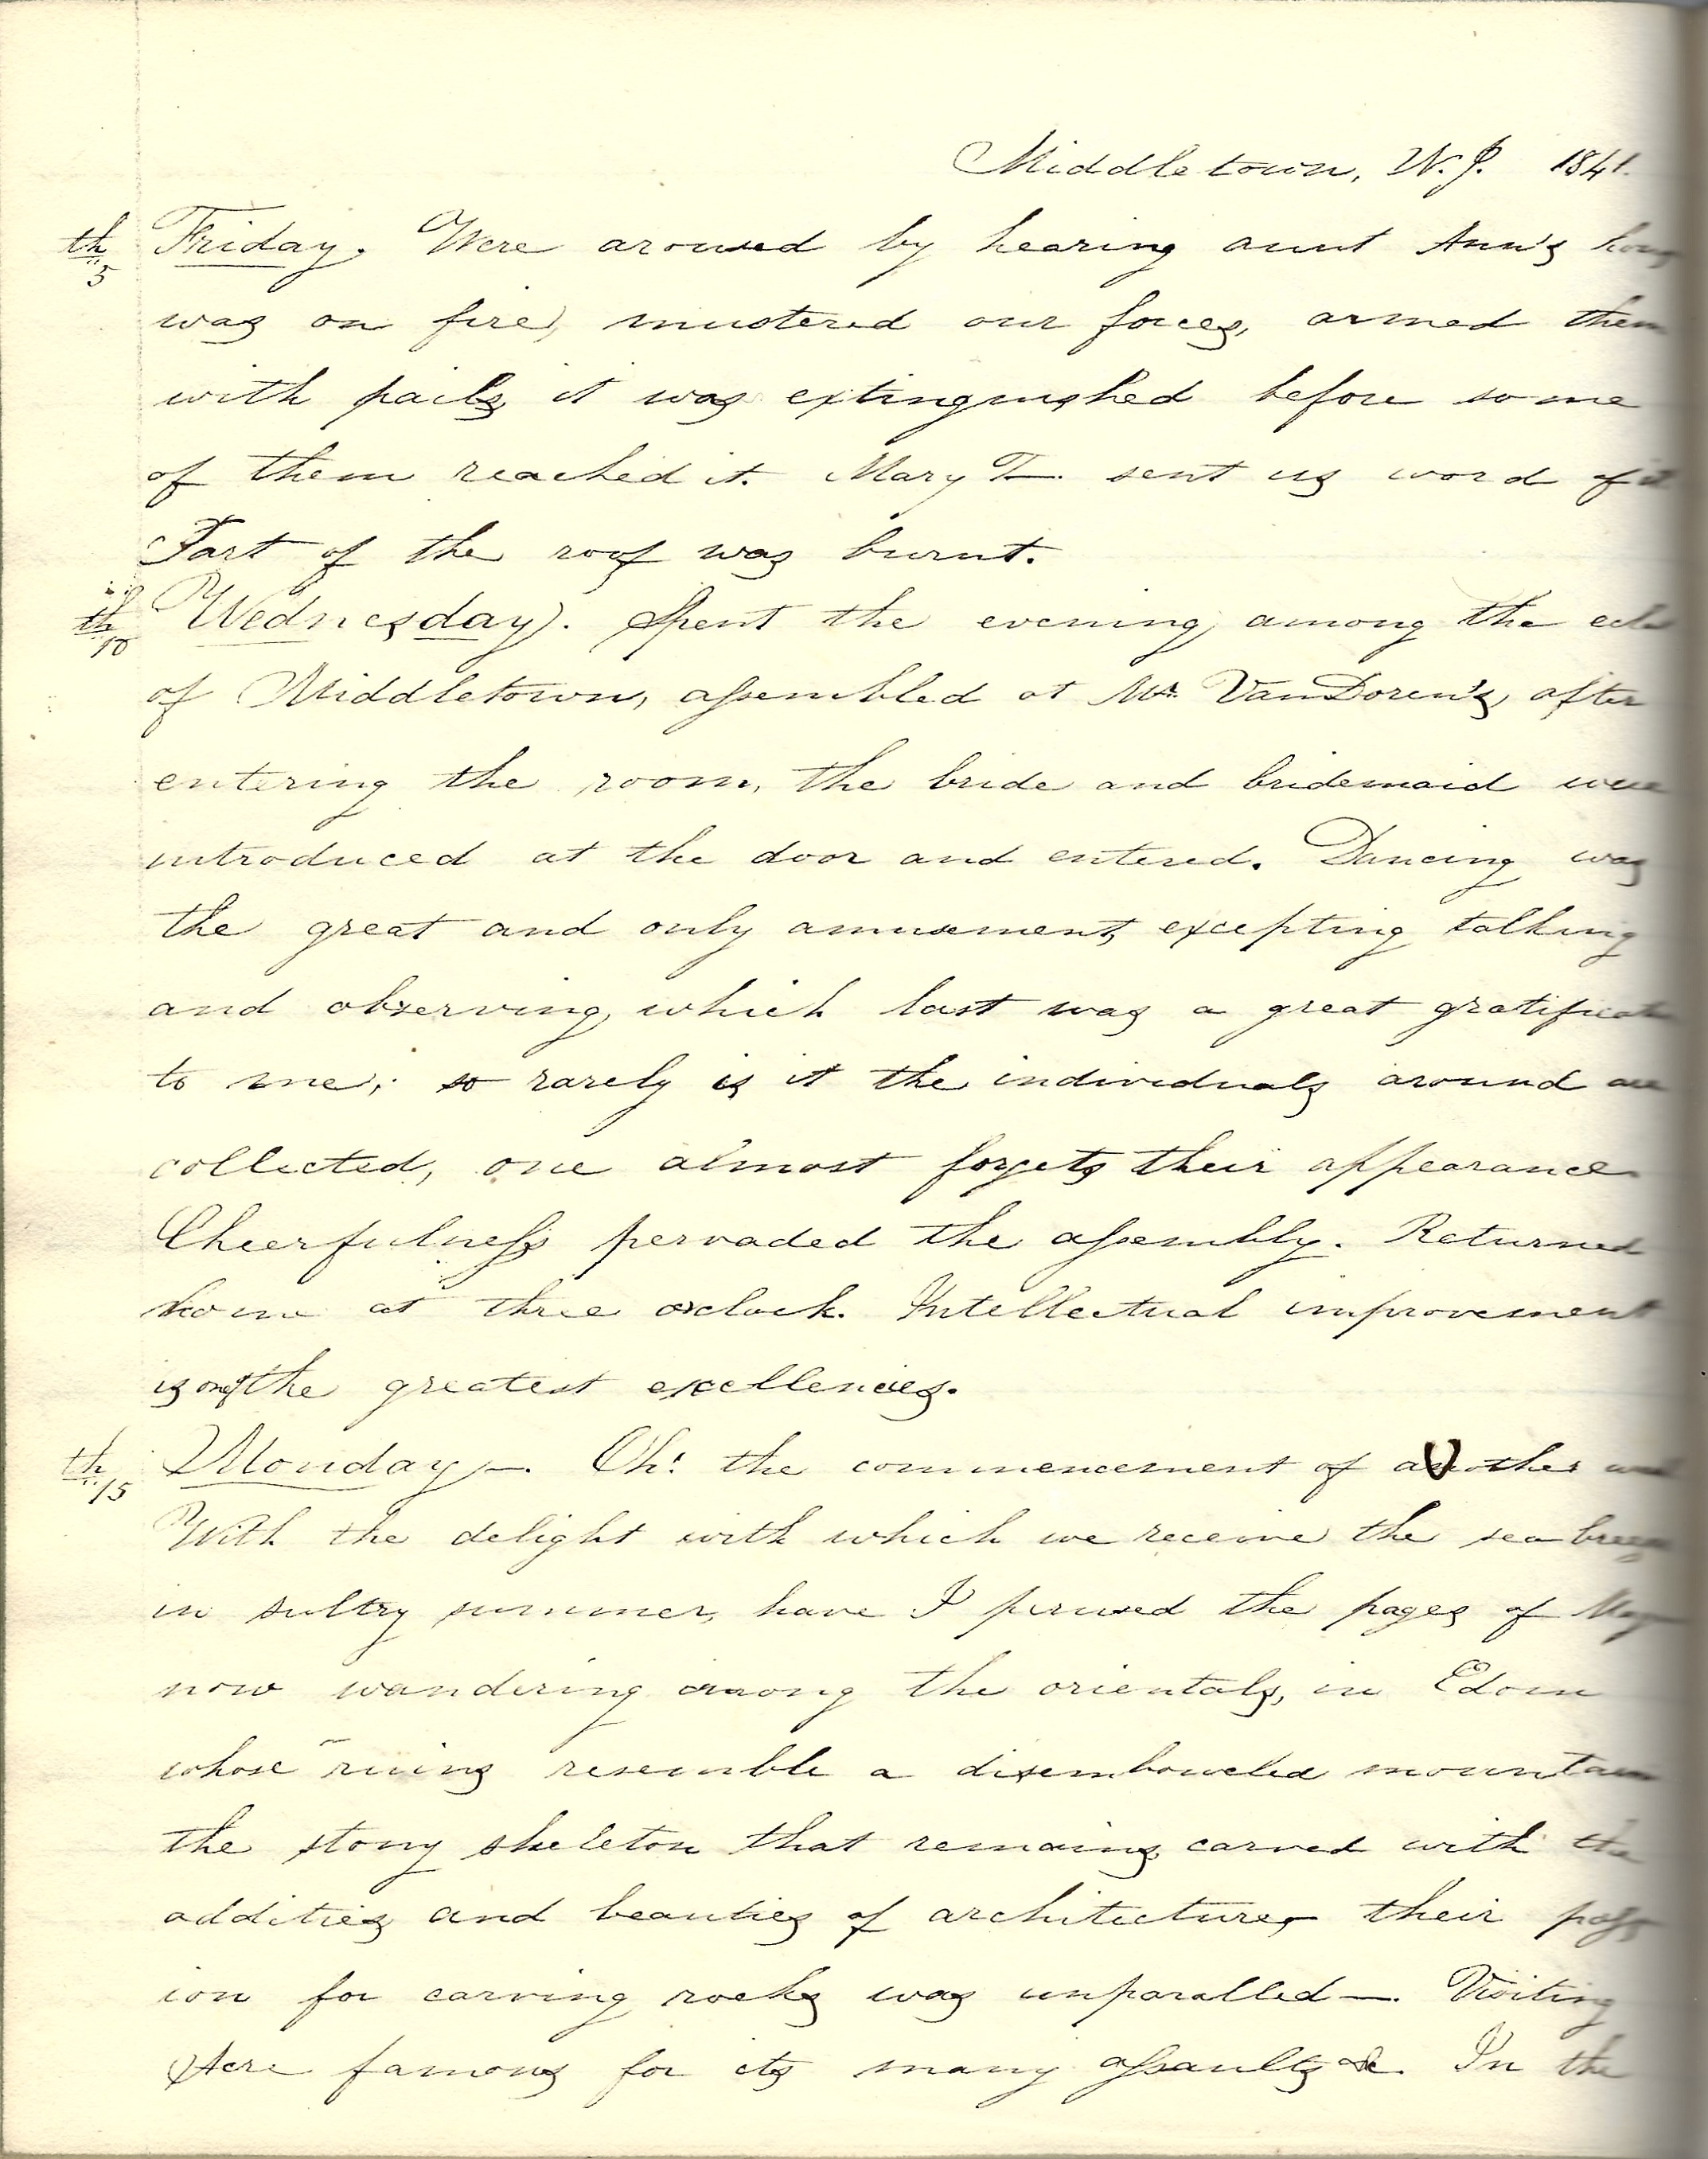 Middletown, N.J. 1841.
th 5 Friday. Were aroused by hearing aunt Ann's
was on fire, mustered our forces, armed them
with pails, it was extinguished before some
of them reached it. Mary T—. sent us word of it
Part of the roof was burnt.
th 10 Wednesday. Spent the evening, among the
of Middletown, assembled at Mr. VanDoren's, after
entering the room, the bride and bridemaid were
introduced at the door and entered. Dancing was
the great and only amusement, excepting talking
and observing, which last was a great
to me; so rarely is it the individuals around are
collected, one almost forgets their appearance
Cheerfulness pervaded the assembly. Returned
home at three oclock. Intellectual improvement
is one of the greatest excellencies.
th 15 Monday—. Oh! the commencement of another
With the delight with which we receive the sea
in sultry summer, have I perused the pages of
now wandering among the orientals, in Edom
whose ruins resemble a disemboweled mountain
the stony skeleton that remains, carved with the
oddities and beauties of architecture, their pass
ion for carving rocks was unparalled—. Visiting
Acre famous for its many assaults &c. In the